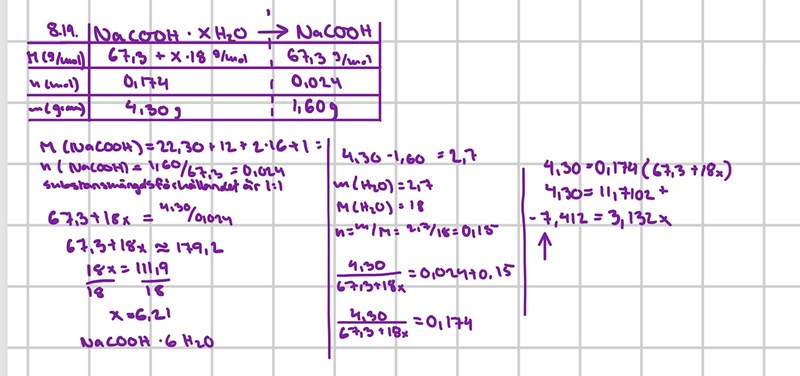 8.19. NaCOOH · xH₂O → NaCOOH
M(g/mol) 67,3 + x·18 g/mol 67,3 g/mol
n(mol) 0,174 0,024
m(gram) 4,30g 1,60g
M (NaCOOH)=22,30+12+2·16+1=
n (NaCOOH)= 1,60/67,3 = 0,024
substansmängdsförhållandet är 1:1
67,3+18x = 4,30/0,024
67,3+18x ≈ 179,2
18x = 111,9
18 18
x=6,21
NaCOOH · 6 H₂O
4,30-1,60 = 2,7
m(H₂O)=2,7
M(H₂O)=18
n=m/M= 2,7/18=0,15
4,30
67,3+18x =0,024+0,15
4,30
67,3+18x =0,174
4,30=0,174(67,3+18x)
4,30=11,7102+
-7,412=3,132x
↑